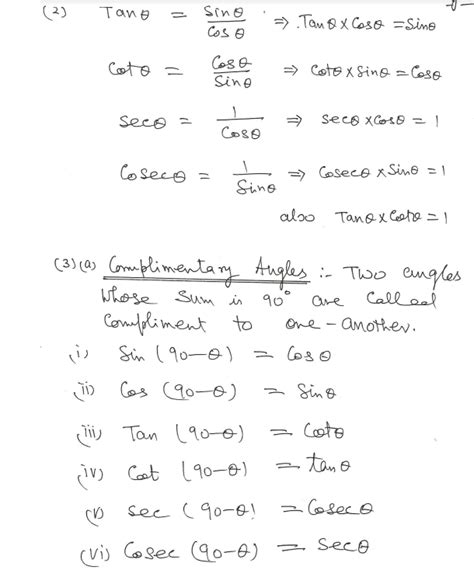 (2) Tanθ = Sinθ/Cosθ ⇒ Tanθ × Cosθ = Sinθ
Cotθ = Cosθ/Sinθ ⇒ Cotθ × Sinθ = Cosθ
Secθ = 1/Cosθ ⇒ Secθ × Cosθ = 1
Cosecθ = 1/Sinθ ⇒ Cosecθ × Sinθ = 1
also Tanθ × Cotθ = 1
(3)(a) Complimentary Angles :- Two angles
whose sum is 90° are called
compliment to one-another.
(i) Sin (90-θ) = Cosθ
(ii) Cos (90-θ) = Sinθ
(iii) Tan (90-θ) = Cotθ
(iv) Cot (90-θ) = tanθ
(v) Sec (90-θ) = Cosecθ
(vi) Cosec (90-θ) = Secθ